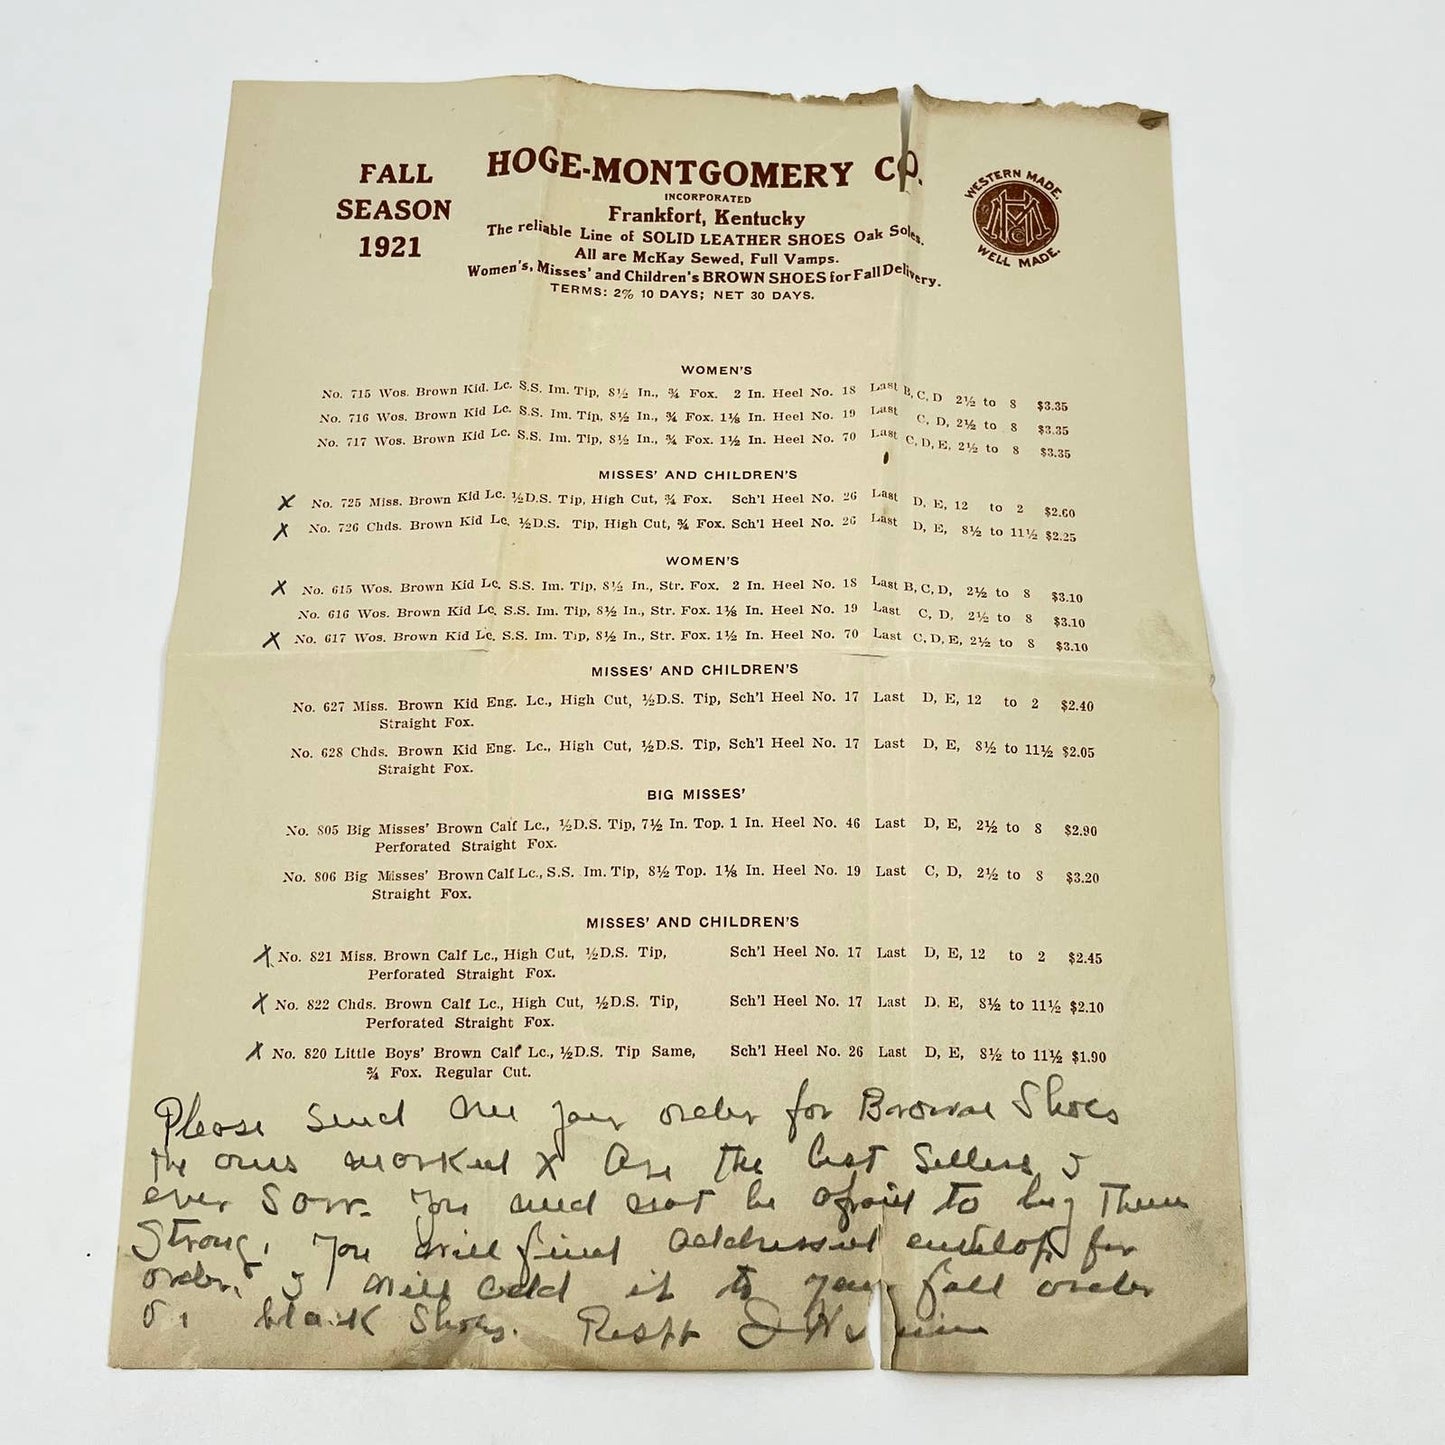 FALL
SEASON
1921
HOGE-MONTGOMERY CO.
INCORPORATED
Frankfort, Kentucky
The reliable Line of SOLID LEATHER SHOES Oak Soles.
All are McKay Sewed, Full Vamps.
Women's, Misses' and Children's BROWN SHOES for Fall Delivery.
TERMS: 2% 10 DAYS; NET 30 DAYS.
WESTERN MADE.
HMC
WELL MADE.
WOMEN'S
No. 715 Wos. Brown Kid. Lc. S.S. Im. Tip, 8½ In., ¾ Fox. 2 In. Heel No. 18 Last B, C, D 2½ to 8 $3.35
No. 716 Wos. Brown Kid Lc. S.S. Im. Tip, 8½ In., ¾ Fox. 1⅛ In. Heel No. 19 Last C, D, 2½ to 8 $3.35
No. 717 Wos. Brown Kid Lc. S.S. Im. Tip, 8½ In., ¾ Fox. 1½ In. Heel No. 70 Last C, D, E, 2½ to 8 $3.35
MISSES' AND CHILDREN'S
X No. 725 Miss. Brown Kid Lc. ½D.S. Tip, High Cut, ¾ Fox. Sch'l Heel No. 26 Last D, E, 12 to 2 $2.60
X No. 726 Chds. Brown Kid Lc. ½D.S. Tip, High Cut, ¾ Fox. Sch'l Heel No. 26 Last D, E, 8½ to 11½ $2.25
WOMEN'S
X No. 615 Wos. Brown Kid Lc. S.S. Im. Tip, 8½ In., Str. Fox. 2 In. Heel No. 18 Last B, C, D, 2½ to 8 $3.10
No. 616 Wos. Brown Kid Lc. S.S. Im. Tip, 8½ In., Str. Fox. 1⅛ In. Heel No. 19 Last C, D, 2½ to 8 $3.10
X No. 617 Wos. Brown Kid Lc. S.S. Im. Tip, 8½ In., Str. Fox. 1½ In. Heel No. 70 Last C, D, E, 2½ to 8 $3.10
MISSES' AND CHILDREN'S
No. 627 Miss. Brown Kid Eng. Lc., High Cut, ½D.S. Tip, Sch'l Heel No. 17 Last D, E, 12 to 2 $2.40
Straight Fox.
No. 628 Chds. Brown Kid Eng. Lc., High Cut, ½D.S. Tip, Sch'l Heel No. 17 Last D, E, 8½ to 11½ $2.05
Straight Fox.
BIG MISSES'
No. 805 Big Misses' Brown Calf Lc., ½D.S. Tip, 7½ In. Top. 1 In. Heel No. 46 Last D, E, 2½ to 8 $2.90
Perforated Straight Fox.
No. 806 Big Misses' Brown Calf Lc., S.S. Im. Tip, 8½ Top. 1⅛ In. Heel No. 19 Last C, D, 2½ to 8 $3.20
Straight Fox.
MISSES' AND CHILDREN'S
X No. 821 Miss. Brown Calf Lc., High Cut, ½D.S. Tip, Sch'l Heel No. 17 Last D, E, 12 to 2 $2.45
Perforated Straight Fox.
X No. 822 Chds. Brown Calf Lc., High Cut, ½D.S. Tip, Sch'l Heel No. 17 Last D. E, 8½ to 11½ $2.10
Perforated Straight Fox.
X No. 820 Little Boys' Brown Calf Lc., ½D.S. Tip Same, Sch'l Heel No. 26 Last D, E, 8½ to 11½ $1.90
¾ Fox. Regular Cut.
Please send me your order for Browne Shoes
the ones marked X are the best Sellers I
ever Saw. You need not be afraid to buy Them
Strong, You will find addressed envelop for
order, & I will add it to your fall order
of black Shoes. Respt